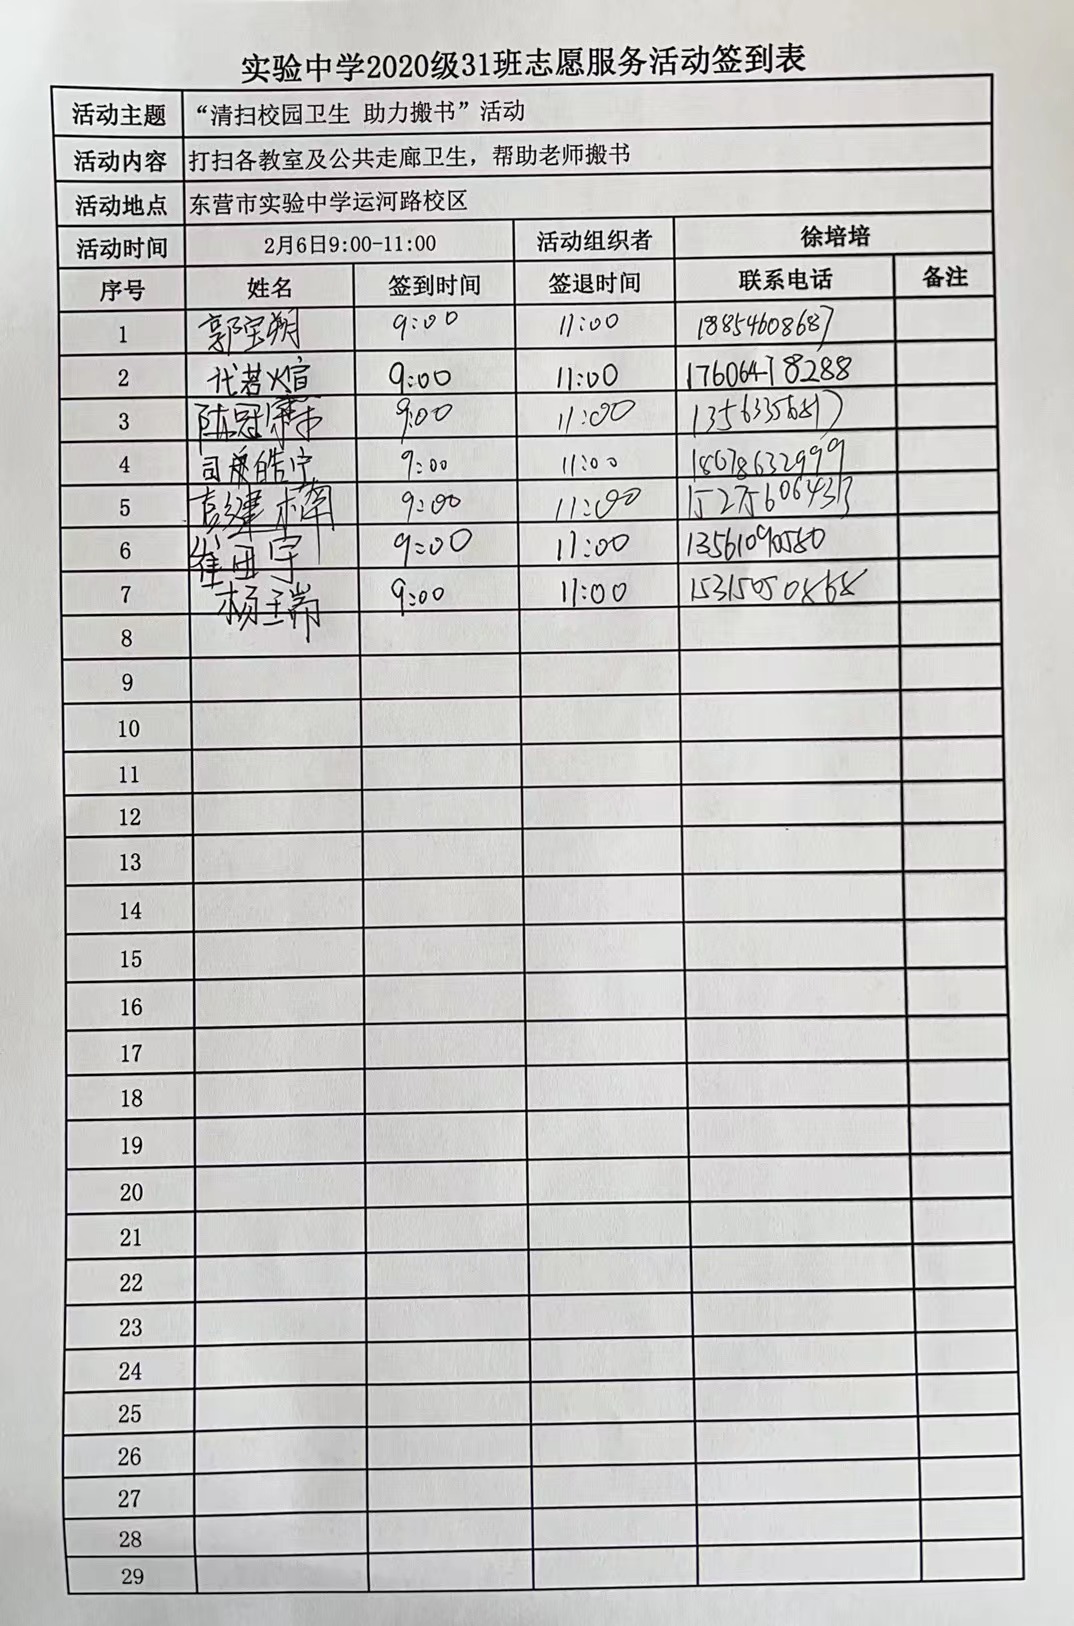 实验中学2020级31班志愿服务活动签到表
活动主题 “清扫校园卫生 助力搬书”活动
活动内容 打扫各教室及公共走廊卫生，帮助老师搬书
活动地点 东营市实验中学运河路校区
活动时间 2月6日9:00-11:00 活动组织者 徐培培
序号 姓名 签到时间 签退时间 联系电话 备注
1 郭宝朔 9:00 11:00 18854608687
2 代若煊 9:00 11:00 17606478288
3 陈冠霖 9:00 11:00
4 司承皓宁 9:00 11:00 18678632999
5 彭建楠 9:00 11:00 15275606433
6 崔亚宇 9:00 11:00 13561090580
7 杨玉瑞 9:00 11:00
8
9
10
11
12
13
14
15
16
17
18
19
20
21
22
23
24
25
26
27
28
29